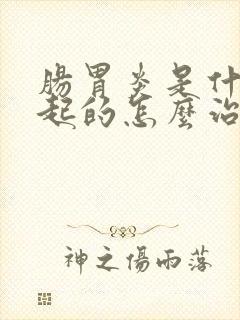 腸胃炎是什
起的怎麼治
神之傷雨落